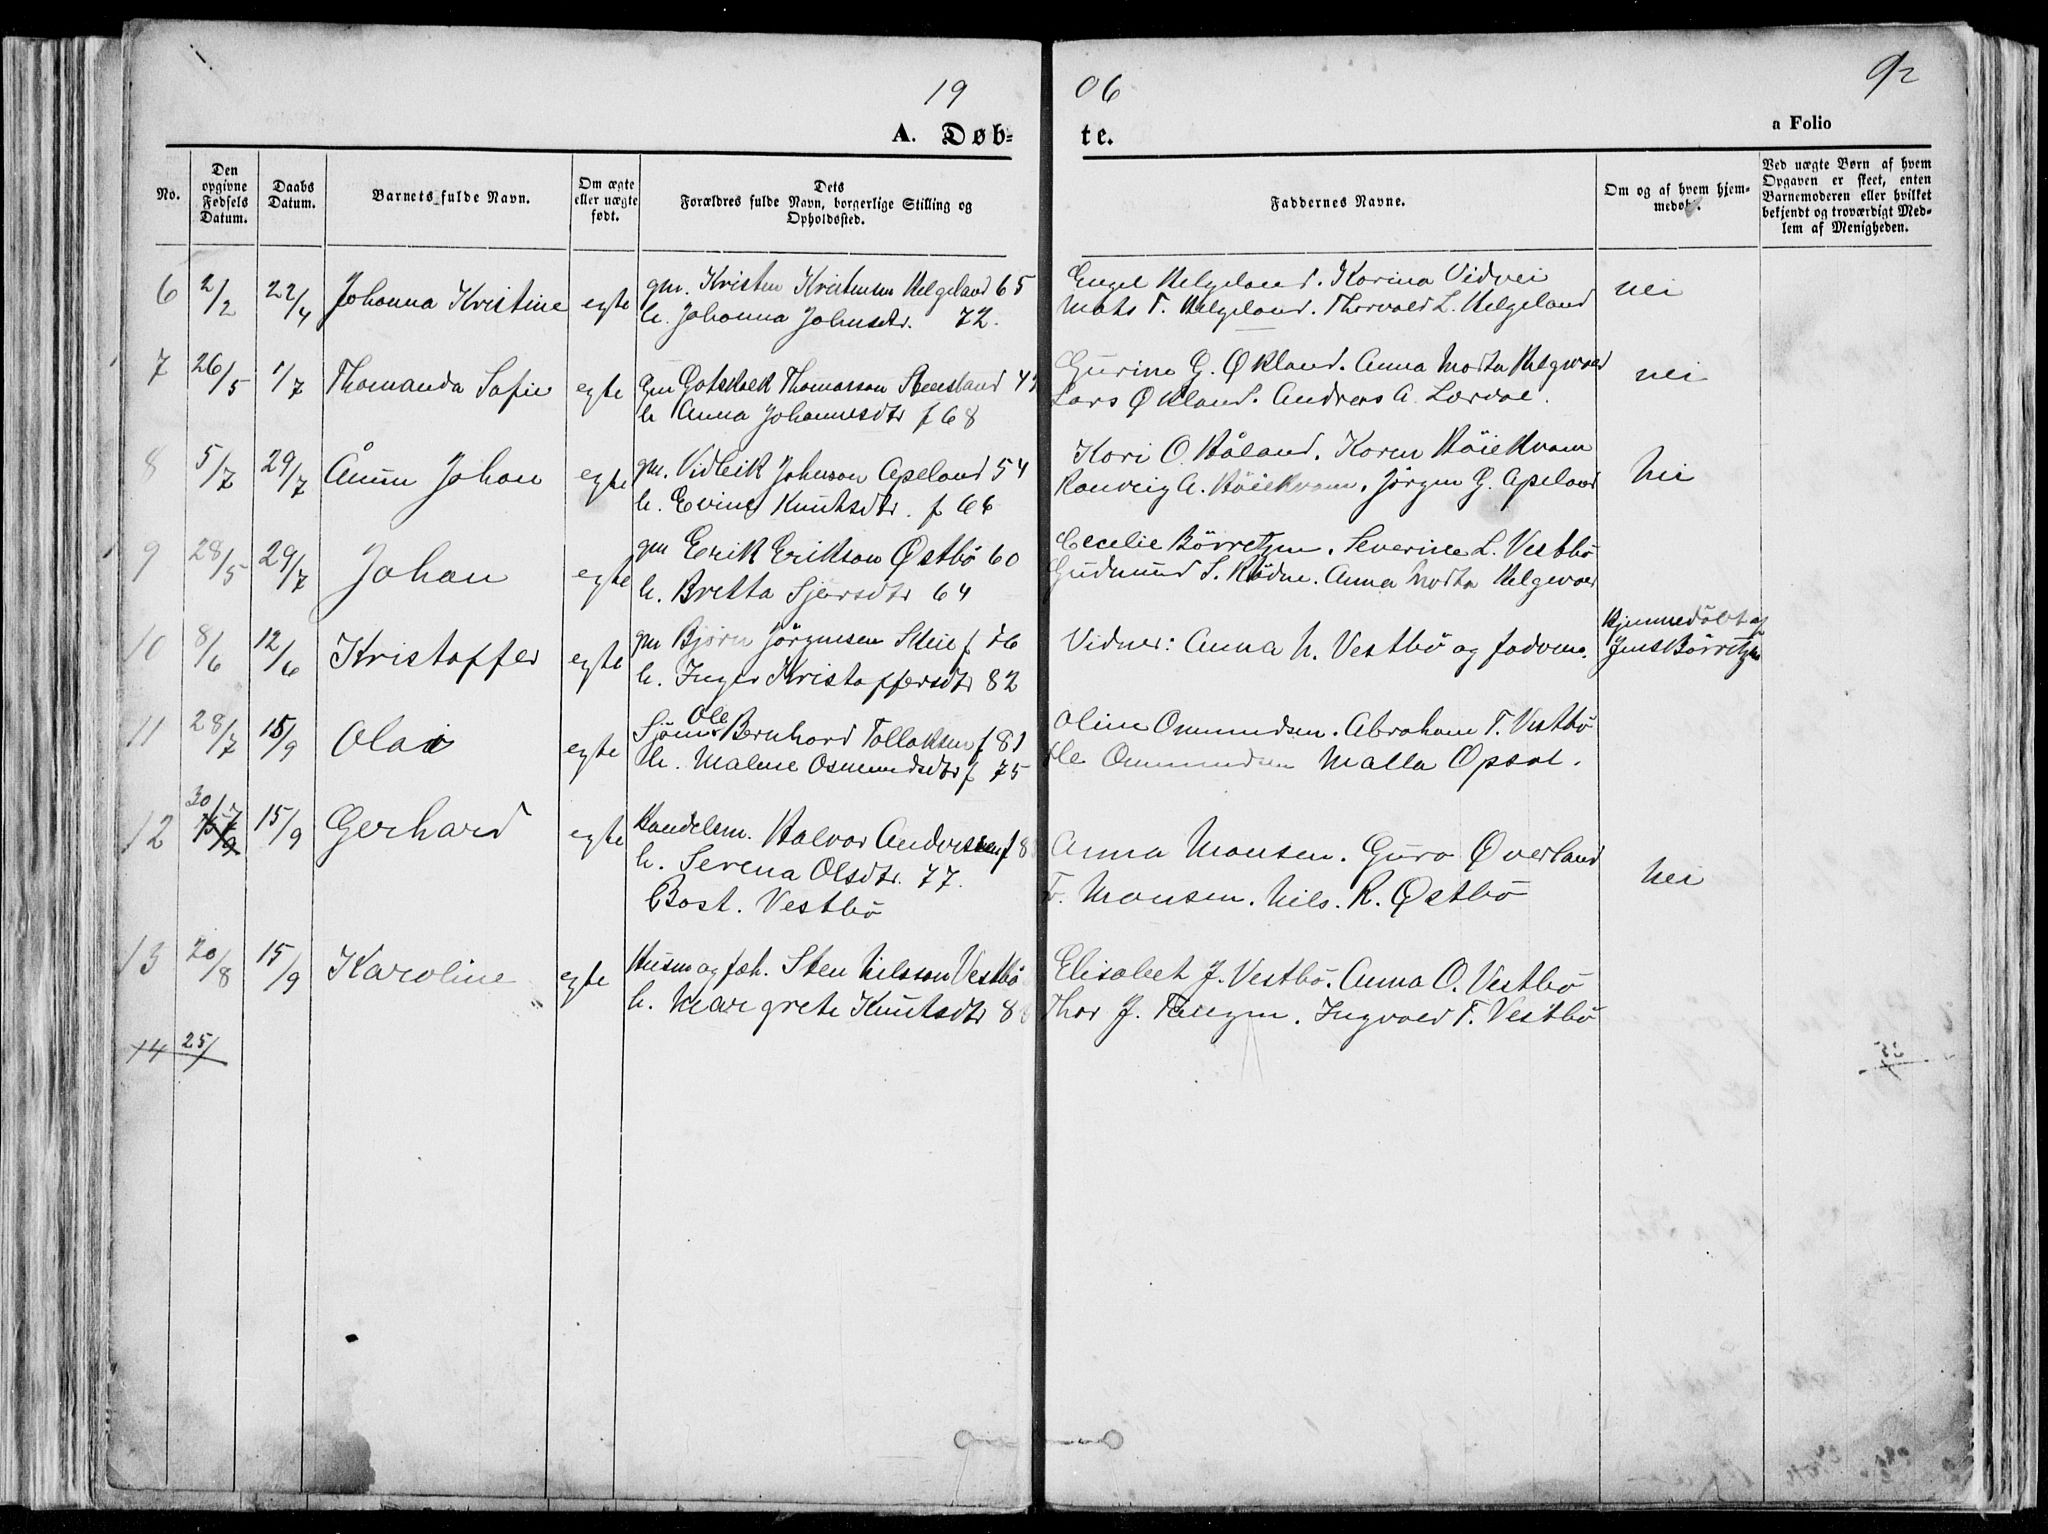 19 06
92
A. Døb-te.
a Folio
No.
Den opgivne Fødsels Datum.
Daabs Datum.
Barnets fulde Navn.
Om ægte eller uægte født.
Dets Forældres fulde Navn, borgerlige Stilling og Opholdssted.
Faddernes Navne.
Om og af hvem hjemmedøbt.
Ved uægte Børn af hvem Opgaven er skeet, enten Barnemoderen eller hvilket bekjendt og troværdigt Medlem af Menigheden.
6 2/2 22/4 Johanna Kristine egte gm. Kristen Kristensen Helgeland 65
h. Johanna Johnsdtr. 72.
Engel Helgeland. Karina Vidvei
Mats T. Helgeland. Thorvald L. Helgeland
nei
7 26/5 1/7 Thomanda Sofie egte gm Gotskalk Thomasson Steensland
h Anna Johannesdtr f 68
Gurine G. Økland. Anna Marta Helgevold
Lars Økland. Andreas A. Lærdal.
nei
8 5/7 29/7 Ånun Johan egte gm. Vidleik Johnson Apeland 54
h. Evine Knutsdtr. f 66
Kari O. Håland. Karen Høiekvam
Ranveig A. Høiekvam. Jörgen G. Apeland
nei
9 28/5 29/7 Johan egte gm Erik Erikson Østbö 60
h. Britta Sjursdtr 64
Cecelie Börretzen. Severine L. Vestbö
Gudmund S. Rödne. Anna Marta Helgevold
10 8/6 12/6 Kristoffer egte gm Bjørn Jörgensen Skeie f 76
h. Inger Kristoffersdtr 82
Vidner: Anna N. Vestbö og faderen.
Hjemmedöbt af
Jens Börretzen
11 28/7 15/9 Olai egte Sjöm. Ole Bernhard Tollaksen f 81
h. Malene Osmundsdtr f 75
Oline Ommundsen. Abraham T. Vestbö
Ole Ommundsen Malla Opsal.
12 30/7 15/9 15/9 Gerhard egte Handelsm. Halvor Andersen f 8
h. Serena Olsdtr. 77.
Bost. Vestbö
Anna Monsen. Guro Øverland
T. Monsen. Nils. R. Østbö
nei
13 20/8 15/9 Karoline egte Husm og fsk. Sten Nilsson Vestbö
h. Margrete Knutsdtr 8
Elisabet J. Vestbö. Anna O. Vestbö
Thor J. Tangen. Ingvald T. Vestbö
14 25/